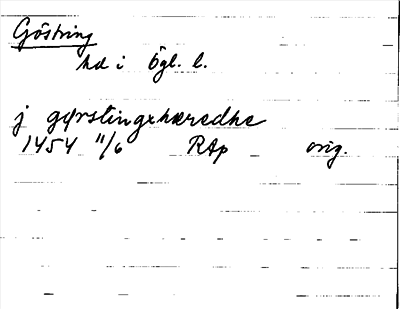 Göstring
hd i Ögl. l.
j gyrstingxhæredhe
1454 11/6 RAp orig.